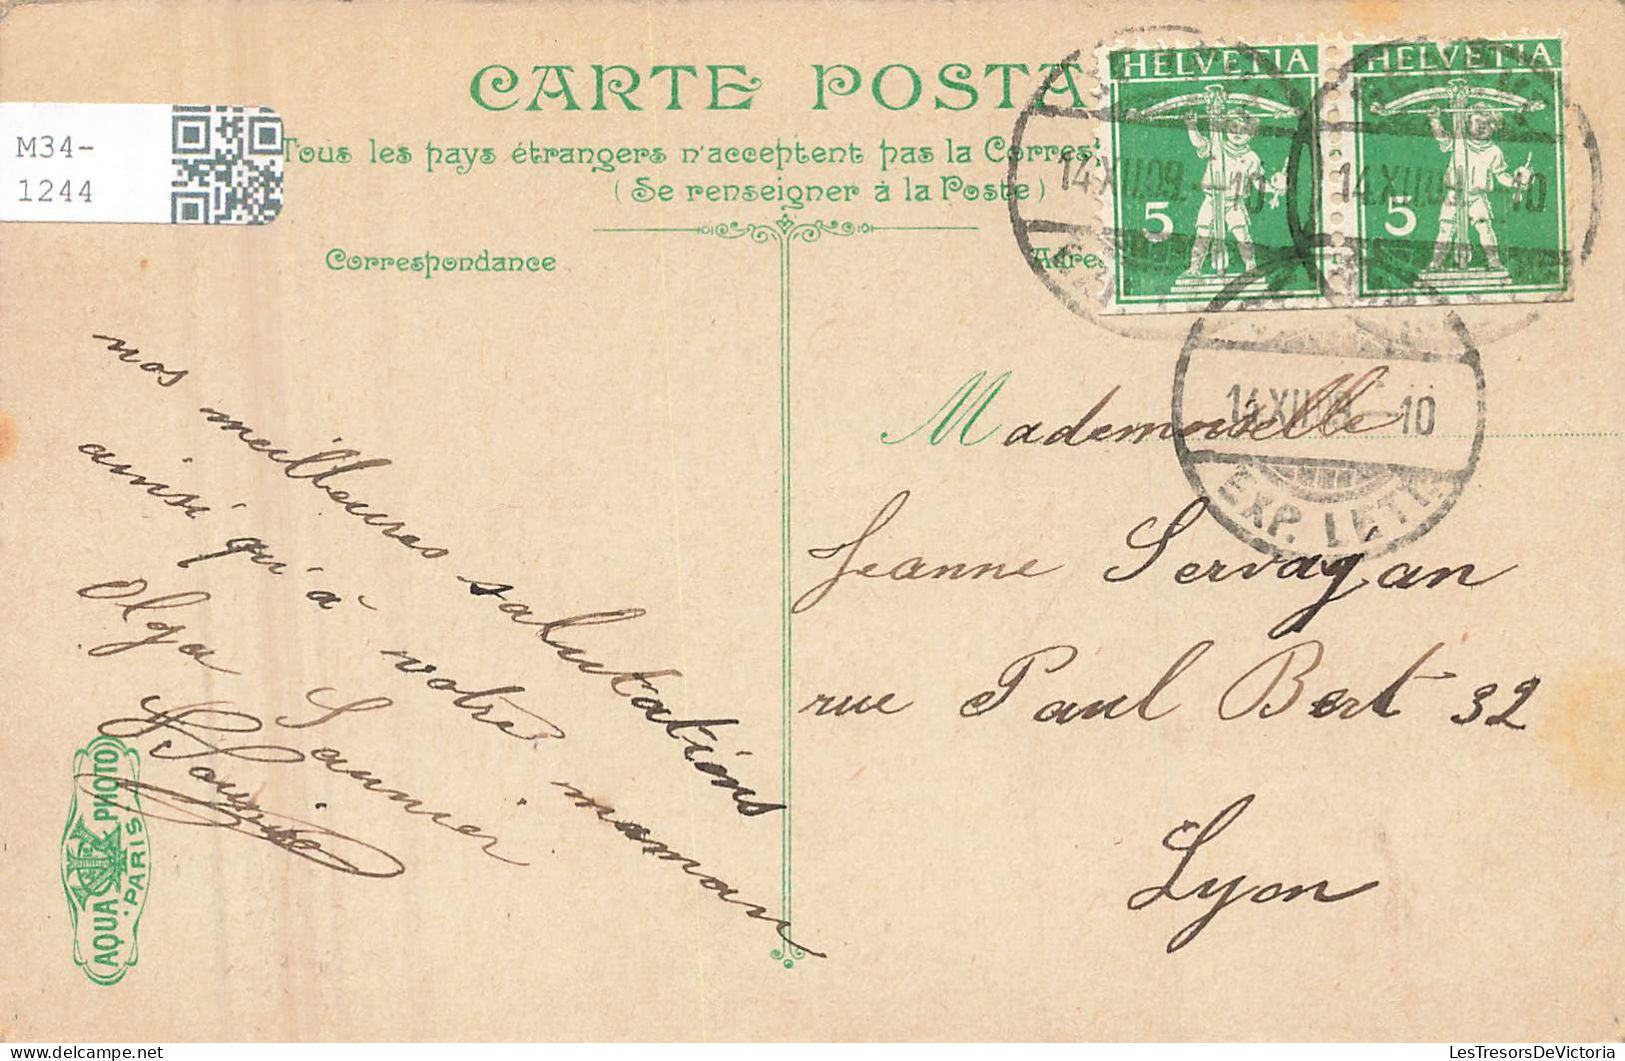 CARTE POSTA
Tous les pays étrangers n'acceptent pas la Corres
(Se renseigner à la Poste)
Correspondance
Adres
M34-
1244
HELVETIA
5
HELVETIA
5
14.XII.09.-10
14.XII.09.-10
14.XII.09.-10
EXP. LETT.
nos meilleures salutations
ainsi qu'à votre maman
Olga Saunier
Mademoiselle
Jeanne Servagan
rue Paul Bert 32
Lyon
AQUA PHOTO
PARIS
www.LesTresorsDeVictoria.com